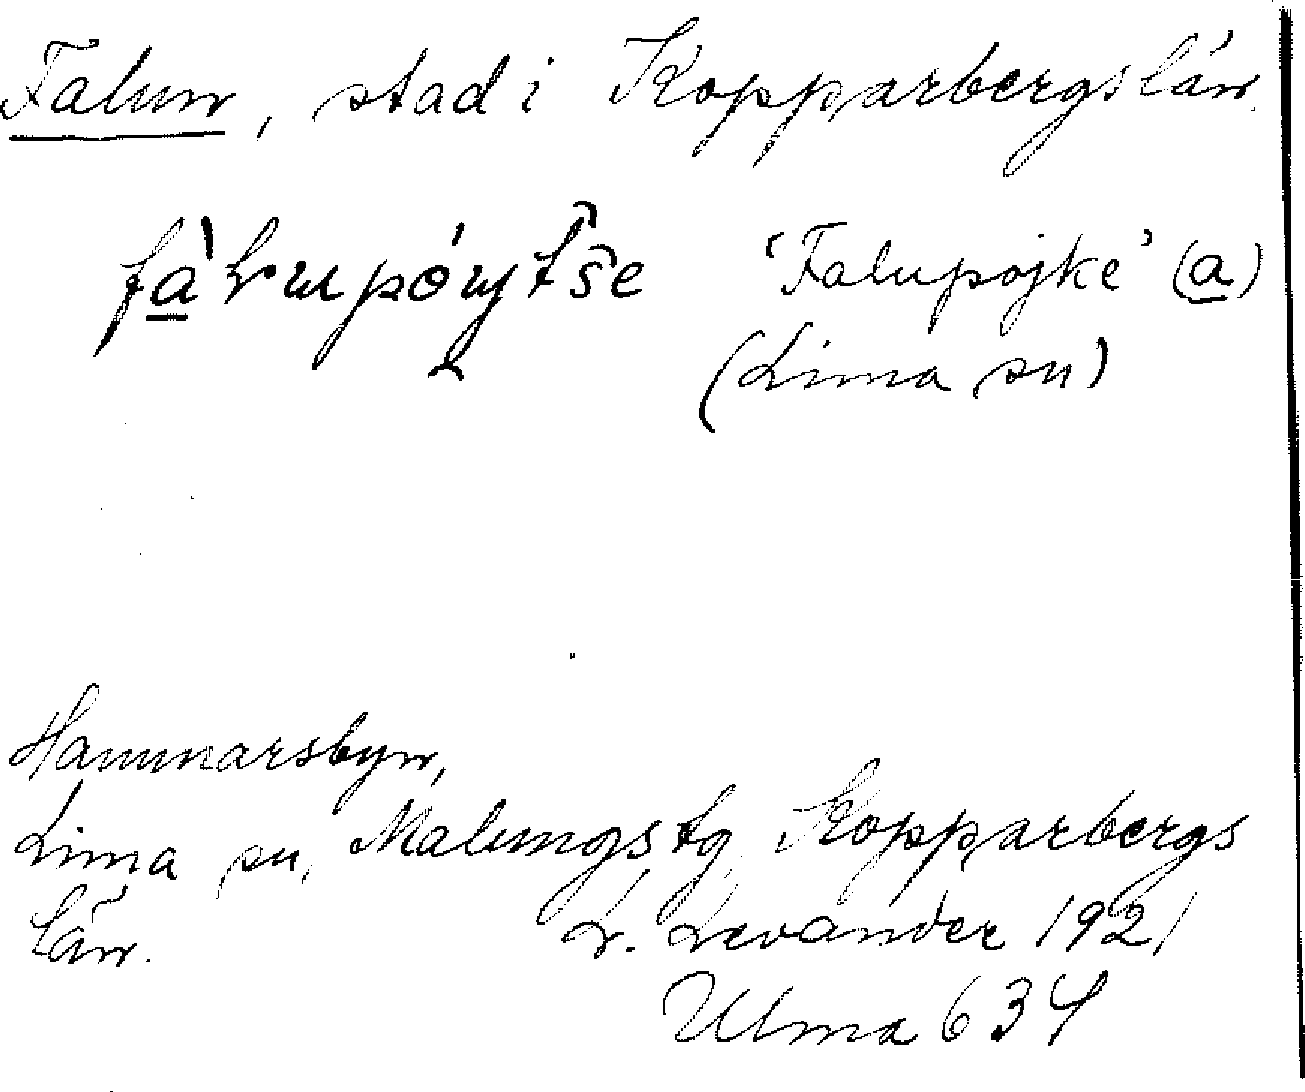 Falun, stad i Kopparbergs län.
'Falupojke' (a)
(Lima sn)
Hammarsbyn,
Lima sn, Malungs tg Kopparbergs
län.
L. Levander 1921
Ulma 634